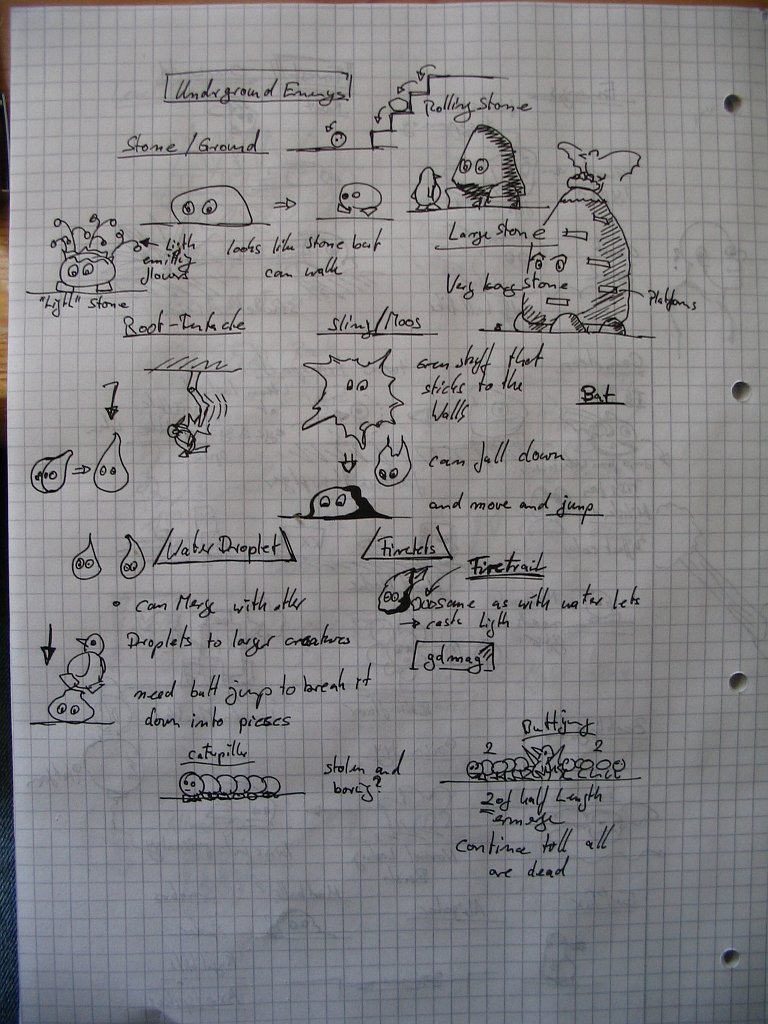 Underground Enemys
Stone/Ground
Rolling Stone
looks like stone but
can walk
Light
emitting
flower
"Light" Stone
Large Stone
Very large stone
Platforms
Root-Tentacle
Slimy/Moos
green stuff that
sticks to the
Walls
Bat
can fall down
and move and jump
Water Droplet
• can Merge with other
Droplets to larger creatures
need butt jump to break it
down into pieces
Firelets
Firetrail
same as with water lets
→ cast light
gdmag
caterpiller
stolen and
boring?
Buttjump
2 2
2 of half length
emerge
continue till all
are dead